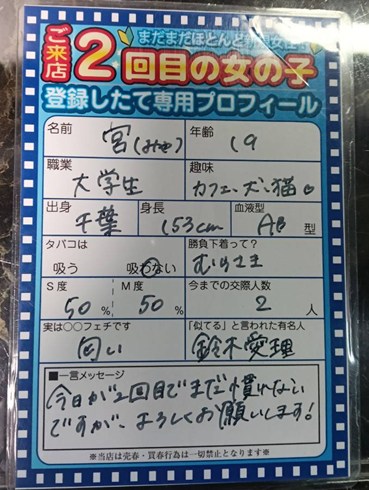 ご来店
まだまだほとんど
2回目の女の子
登録したて専用プロフィール
名前
宮(みや)
年齢
19
職業
大学生
趣味
カフェ、犬、猫。
出身
千葉
身長
153cm
血液型
AB型
タバコは
吸う 吸わない
勝負下着って?
むらさき
S度
50%
M度
50%
今までの交際人数
2人
実は○○フェチです
匂い
「似てる」と言われた有名人
鈴木愛理
■一言メッセージ
今日が2回目でまだ慣れない
ですが、よろしくお願いします!
※当店は売春・買春行為は一切禁止となります※